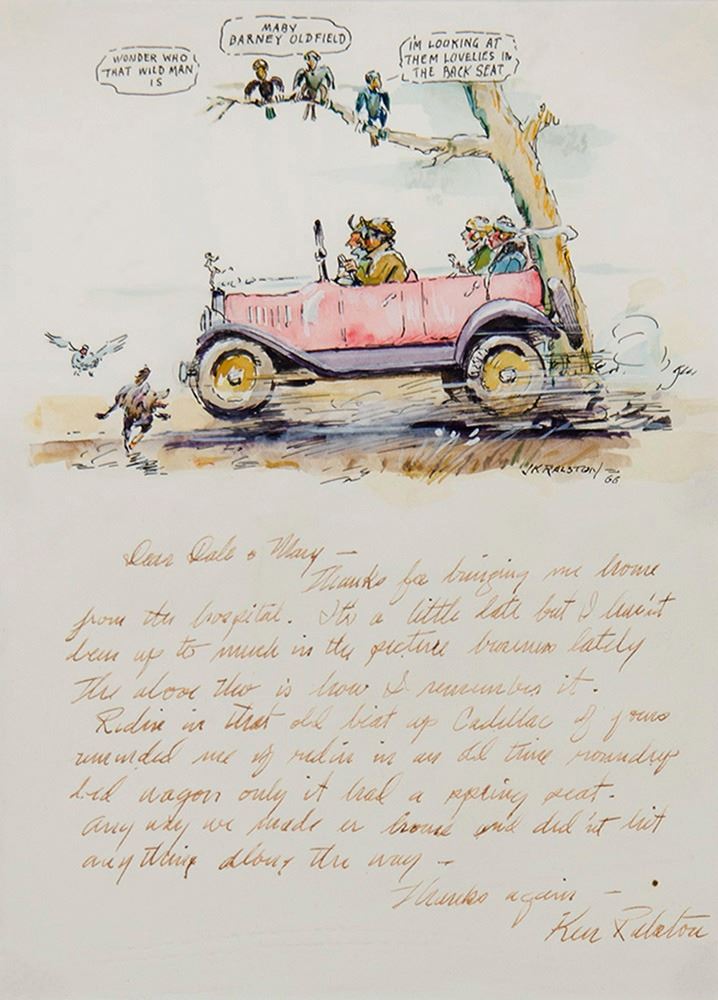 WONDER WHO
THAT WILD MAN
IS
MABY
BARNEY OLDFIELD
IM LOOKING AT
THEM LOVELIES IN
THE BACK SEAT
JK RALSTON
66
Dear Dale & Mary —
Thanks for bringing me home
from the hospital. Its a little late but I have'nt
been up to much in the picture business lately
The above tho is how I remember it.
Ridin in that old beat up Cadillac of yours
reminded me of ridin in an old time roundup
bed wagon only it had a spring seat.
Any way we made er home and did'nt hit
anything along the way —
Thanks again —
Ken Ralston